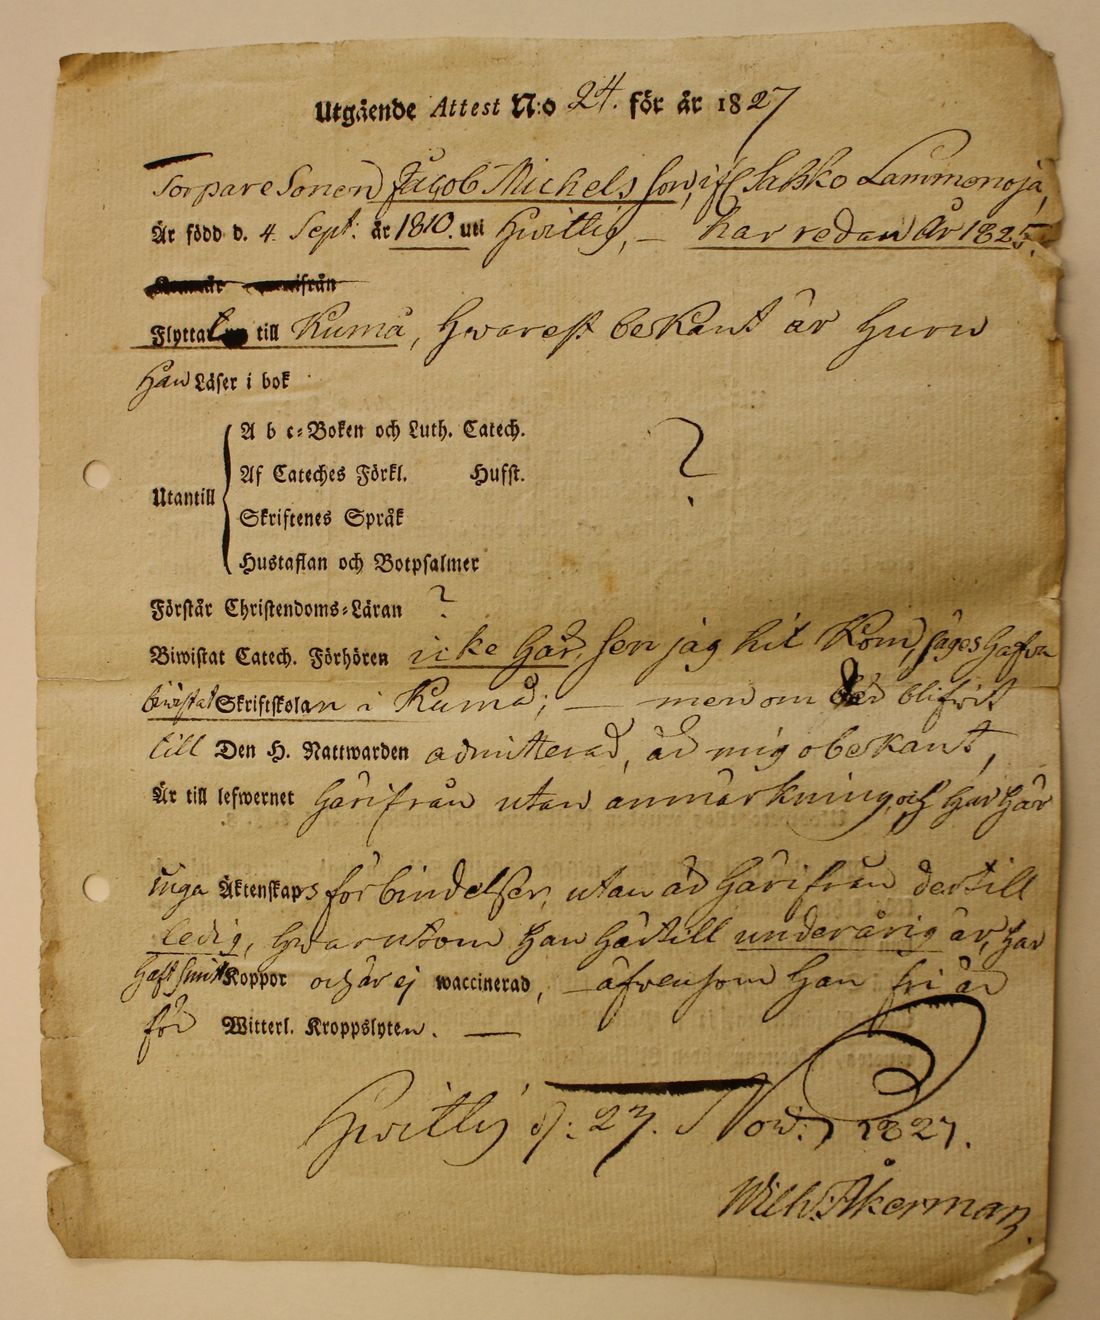 Utgående Attest N:o 24. för år 1827
Torpare Sonen Jacob Michels son, if Sassko Lammenoja,
Är född d. 4. Sept: år 1810. uti Hvittis, — har redan År 1825.
ifrån
Flyttat till Kumå, hwarest bekant är huru
Han Läser i bok
A b c-Boken och Luth. Catech.
?
Af Cateches Förkl. Husst.
Utantill
Skriftenes Språk
Hustaflan och Botpsalmer
Förstår Christendoms-Läran ?
Biwistat Catech. Förhören icke här, sen jag hit kom, säges hafva
biwistat Skriftskolan i Kumå; — men om han blifvit
till Den H. Nattwarden admitterad, är mig obekant,
Är till lefwernet härifrån utan anmärkning, och har här
inga Äktenskaps förbindelser, utan är härifrån dertill
ledig, hvarutom han härtill underårig är, har
haft smitt Koppor och är ej waccinerad, — äfvensom han fri är
för Witterl. Kroppslyten. —
Hvittis d: 27. Nov: 1827.
Wilh: Åkerman.